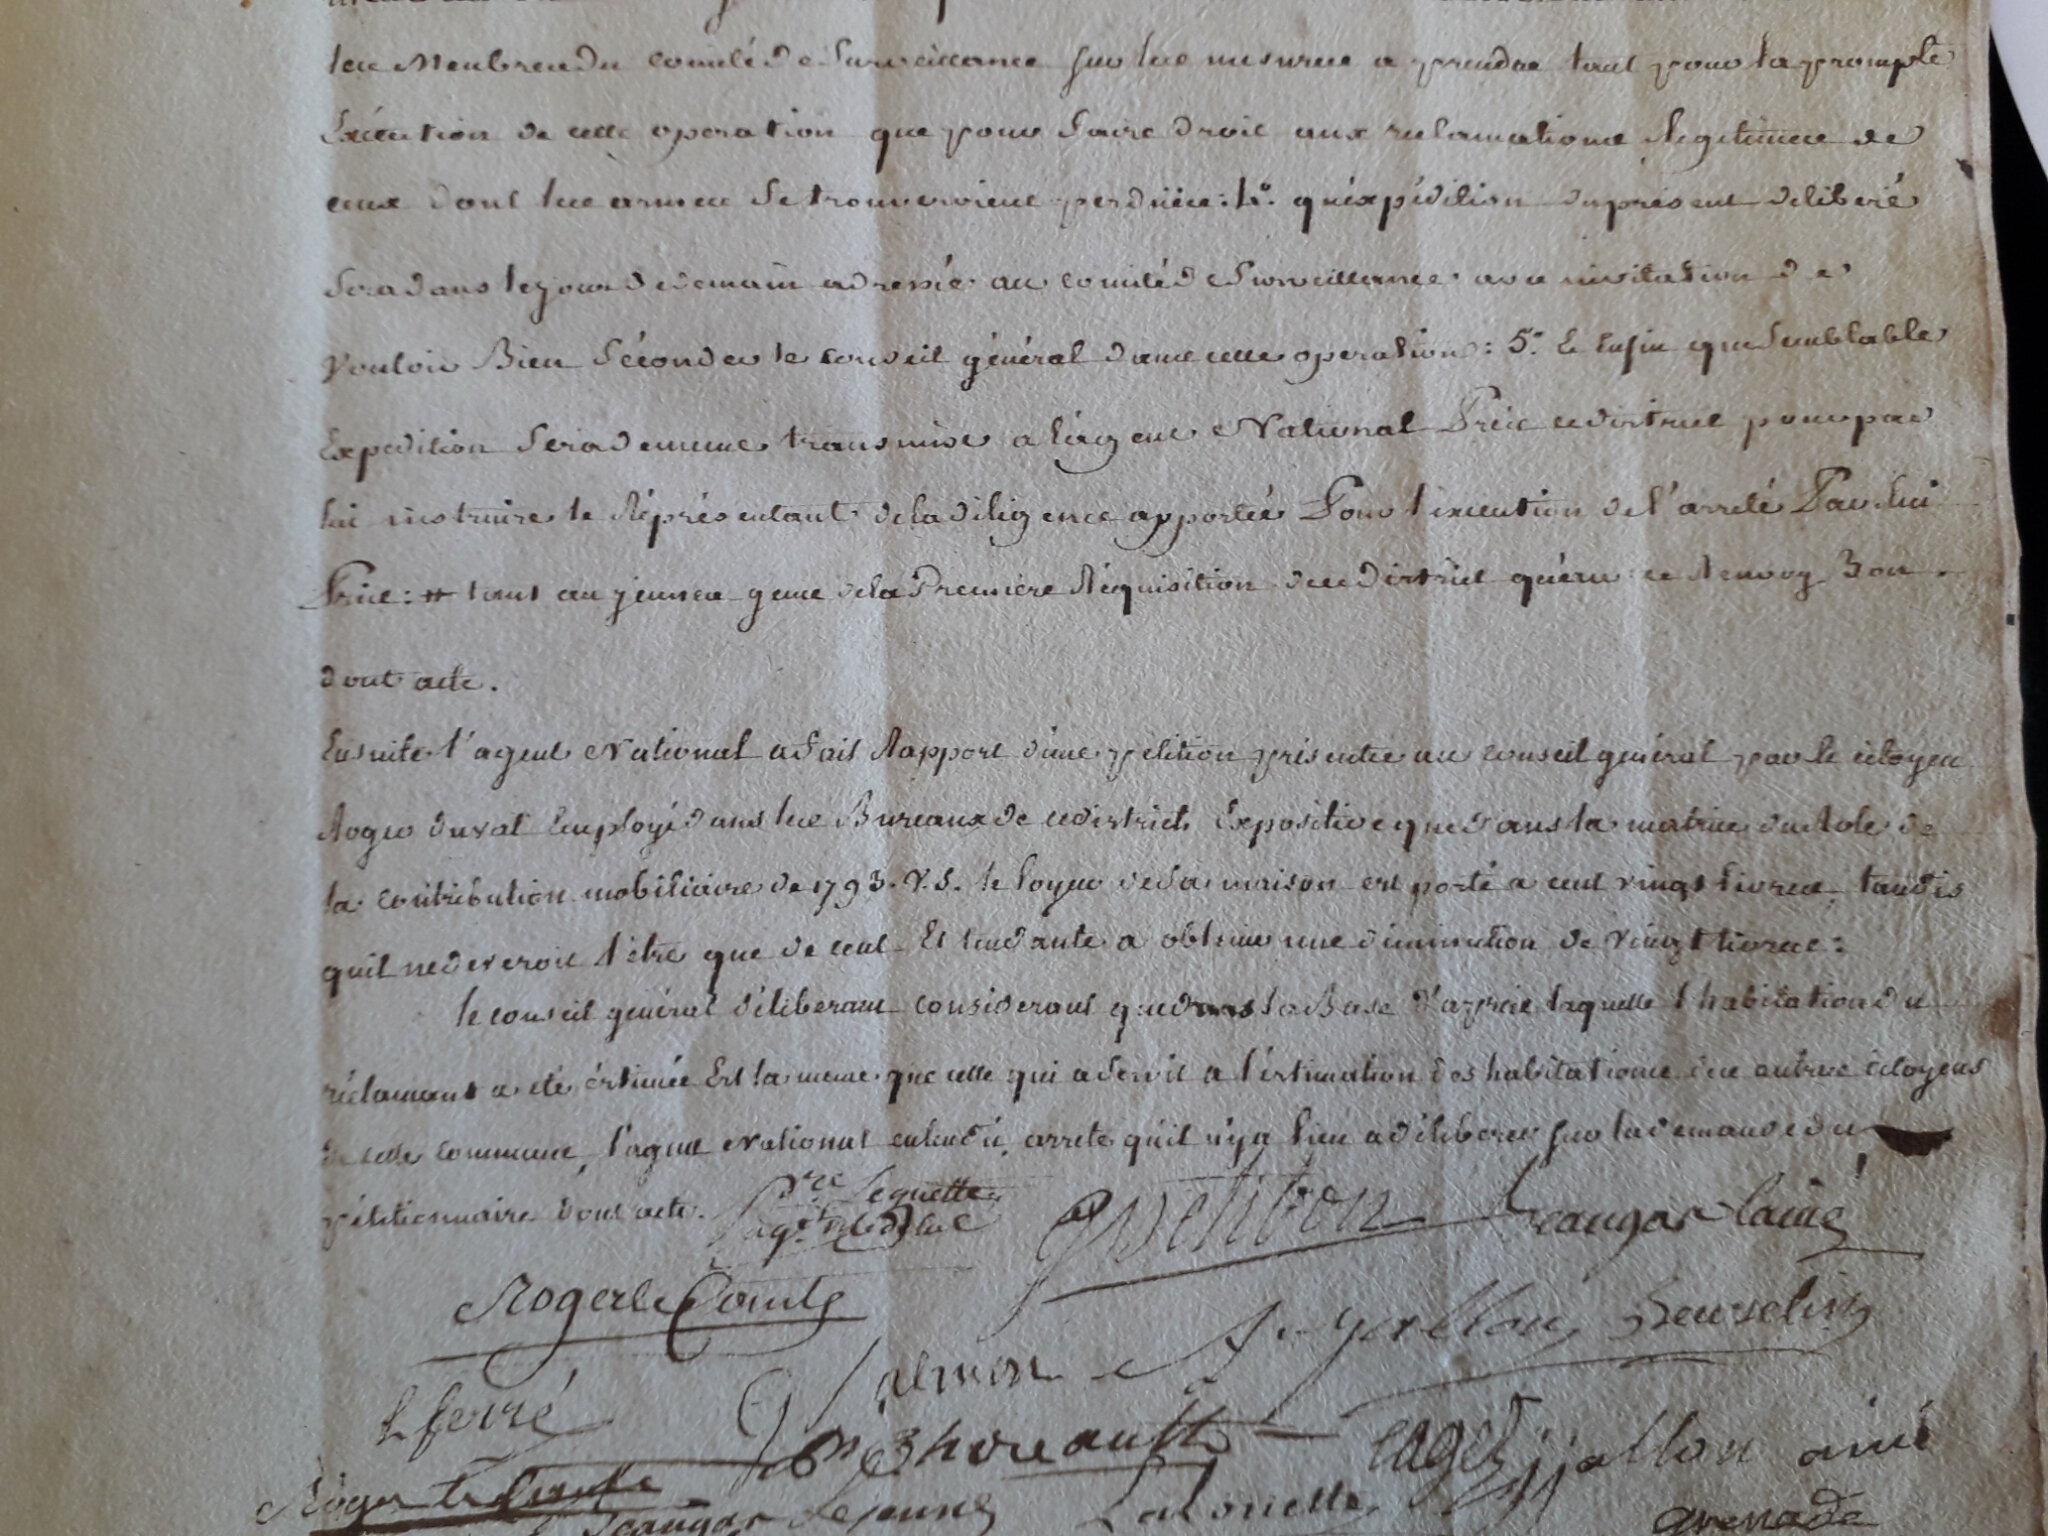 les Membres du comité de Surveillance sur les mesures a prendre tant pour la prompte
Exécution de cette operation que pour faire droit aux reclamations legitimes de
ceux dont les armes se trouveroient perduës: 4°. qu'éxpédition du présent deliberé
Sera dans le jour de demain adressée au comité de Surveillance avec invitation de
Vouloir Bien Séconder le conseil général dans cette operation: 5°. Et Enfin que Semblable
Expedition Sera de meme transmise a l'agent National Près ce district pour par
lui instruire le Réprésentant de la diligence apportée Pour l'exécution de l'arrêté Par lui
Pris: # tant au jeunes gens de la Premiere Réquisition de ce District qu'en ce Renvoy Bon
dont acte.
Ensuite l'agent National a fait Rapport d'une pétition présentée au conseil général par le citoyen
Roger duval Employé dans les Bureaux de ce district, Expositive que dans la matrice du Role de
la contribution mobiliaire de 1793. V.S. le loyer de sa maison est porté a cent vingt livres, tandis
qu'il ne deveroit l'être que de cent Et tendante a obtenir une diminution de vingt livres:
le conseil général déliberant considerant que dans la Base d'après laquelle l'habitation du
réclamant a été éstimée Est la meme que celle qui a servit a l'estimation des habitations des autres citoyens
de cette commune, l'agent National entendu, arrete qu'il n'y a lieu a déliberer sur la demande du
pétitionnaire dont acte. Pre Lequette
agt.
Petitbon Jeaugar lainé
Roger le Comte
Beuzelin
L ferré Salmon
Choreault Lager Jallon ainé
Roger le Comte
Jeaugar lejeune Lalouette
Grenade